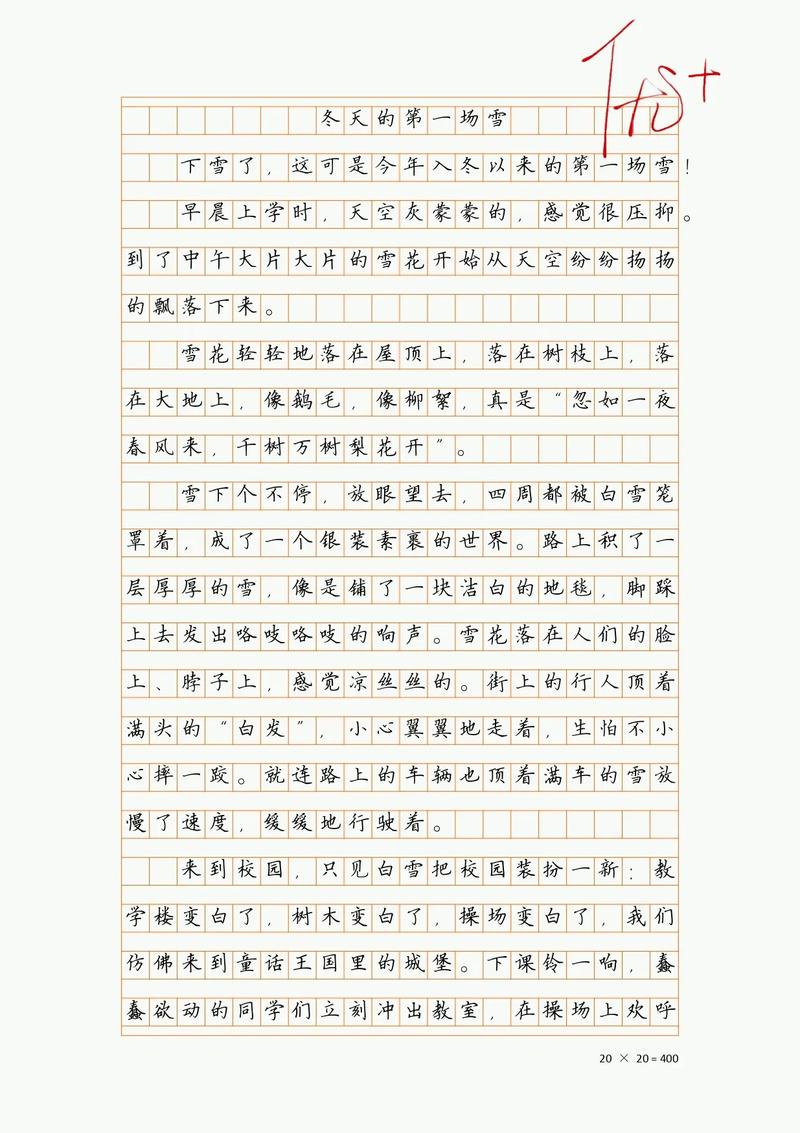 冬天的第一场雪
下雪了，这可是今年入冬以来的第一场雪！
早晨上学时，天空灰蒙蒙的，感觉很压抑。
到了中午大片大片的雪花开始从天空纷纷扬扬
的飘落下来。
雪花轻轻地落在屋顶上，落在树枝上，落
在大地上，像鹅毛，像柳絮，真是“忽如一夜
春风来，千树万树梨花开”。
雪下个不停，放眼望去，四周都被白雪笼
罩着，成了一个银装素裹的世界。路上积了一
层厚厚的雪，像是铺了一块洁白的地毯，脚踩
上去发出咯吱咯吱的响声。雪花落在人们的脸
上、脖子上，感觉凉丝丝的。街上的行人顶着
满头的“白发”，小心翼翼地走着，生怕不小
心摔一跤。就连路上的车辆也顶着满车的雪放
慢了速度，缓缓地行驶着。
来到校园，只见白雪把校园装扮一新：教
学楼变白了，树木变白了，操场变白了，我们
仿佛来到童话王国里的城堡。下课铃一响，蠢
蠢欲动的同学们立刻冲出教室，在操场上欢呼
20 × 20 = 400